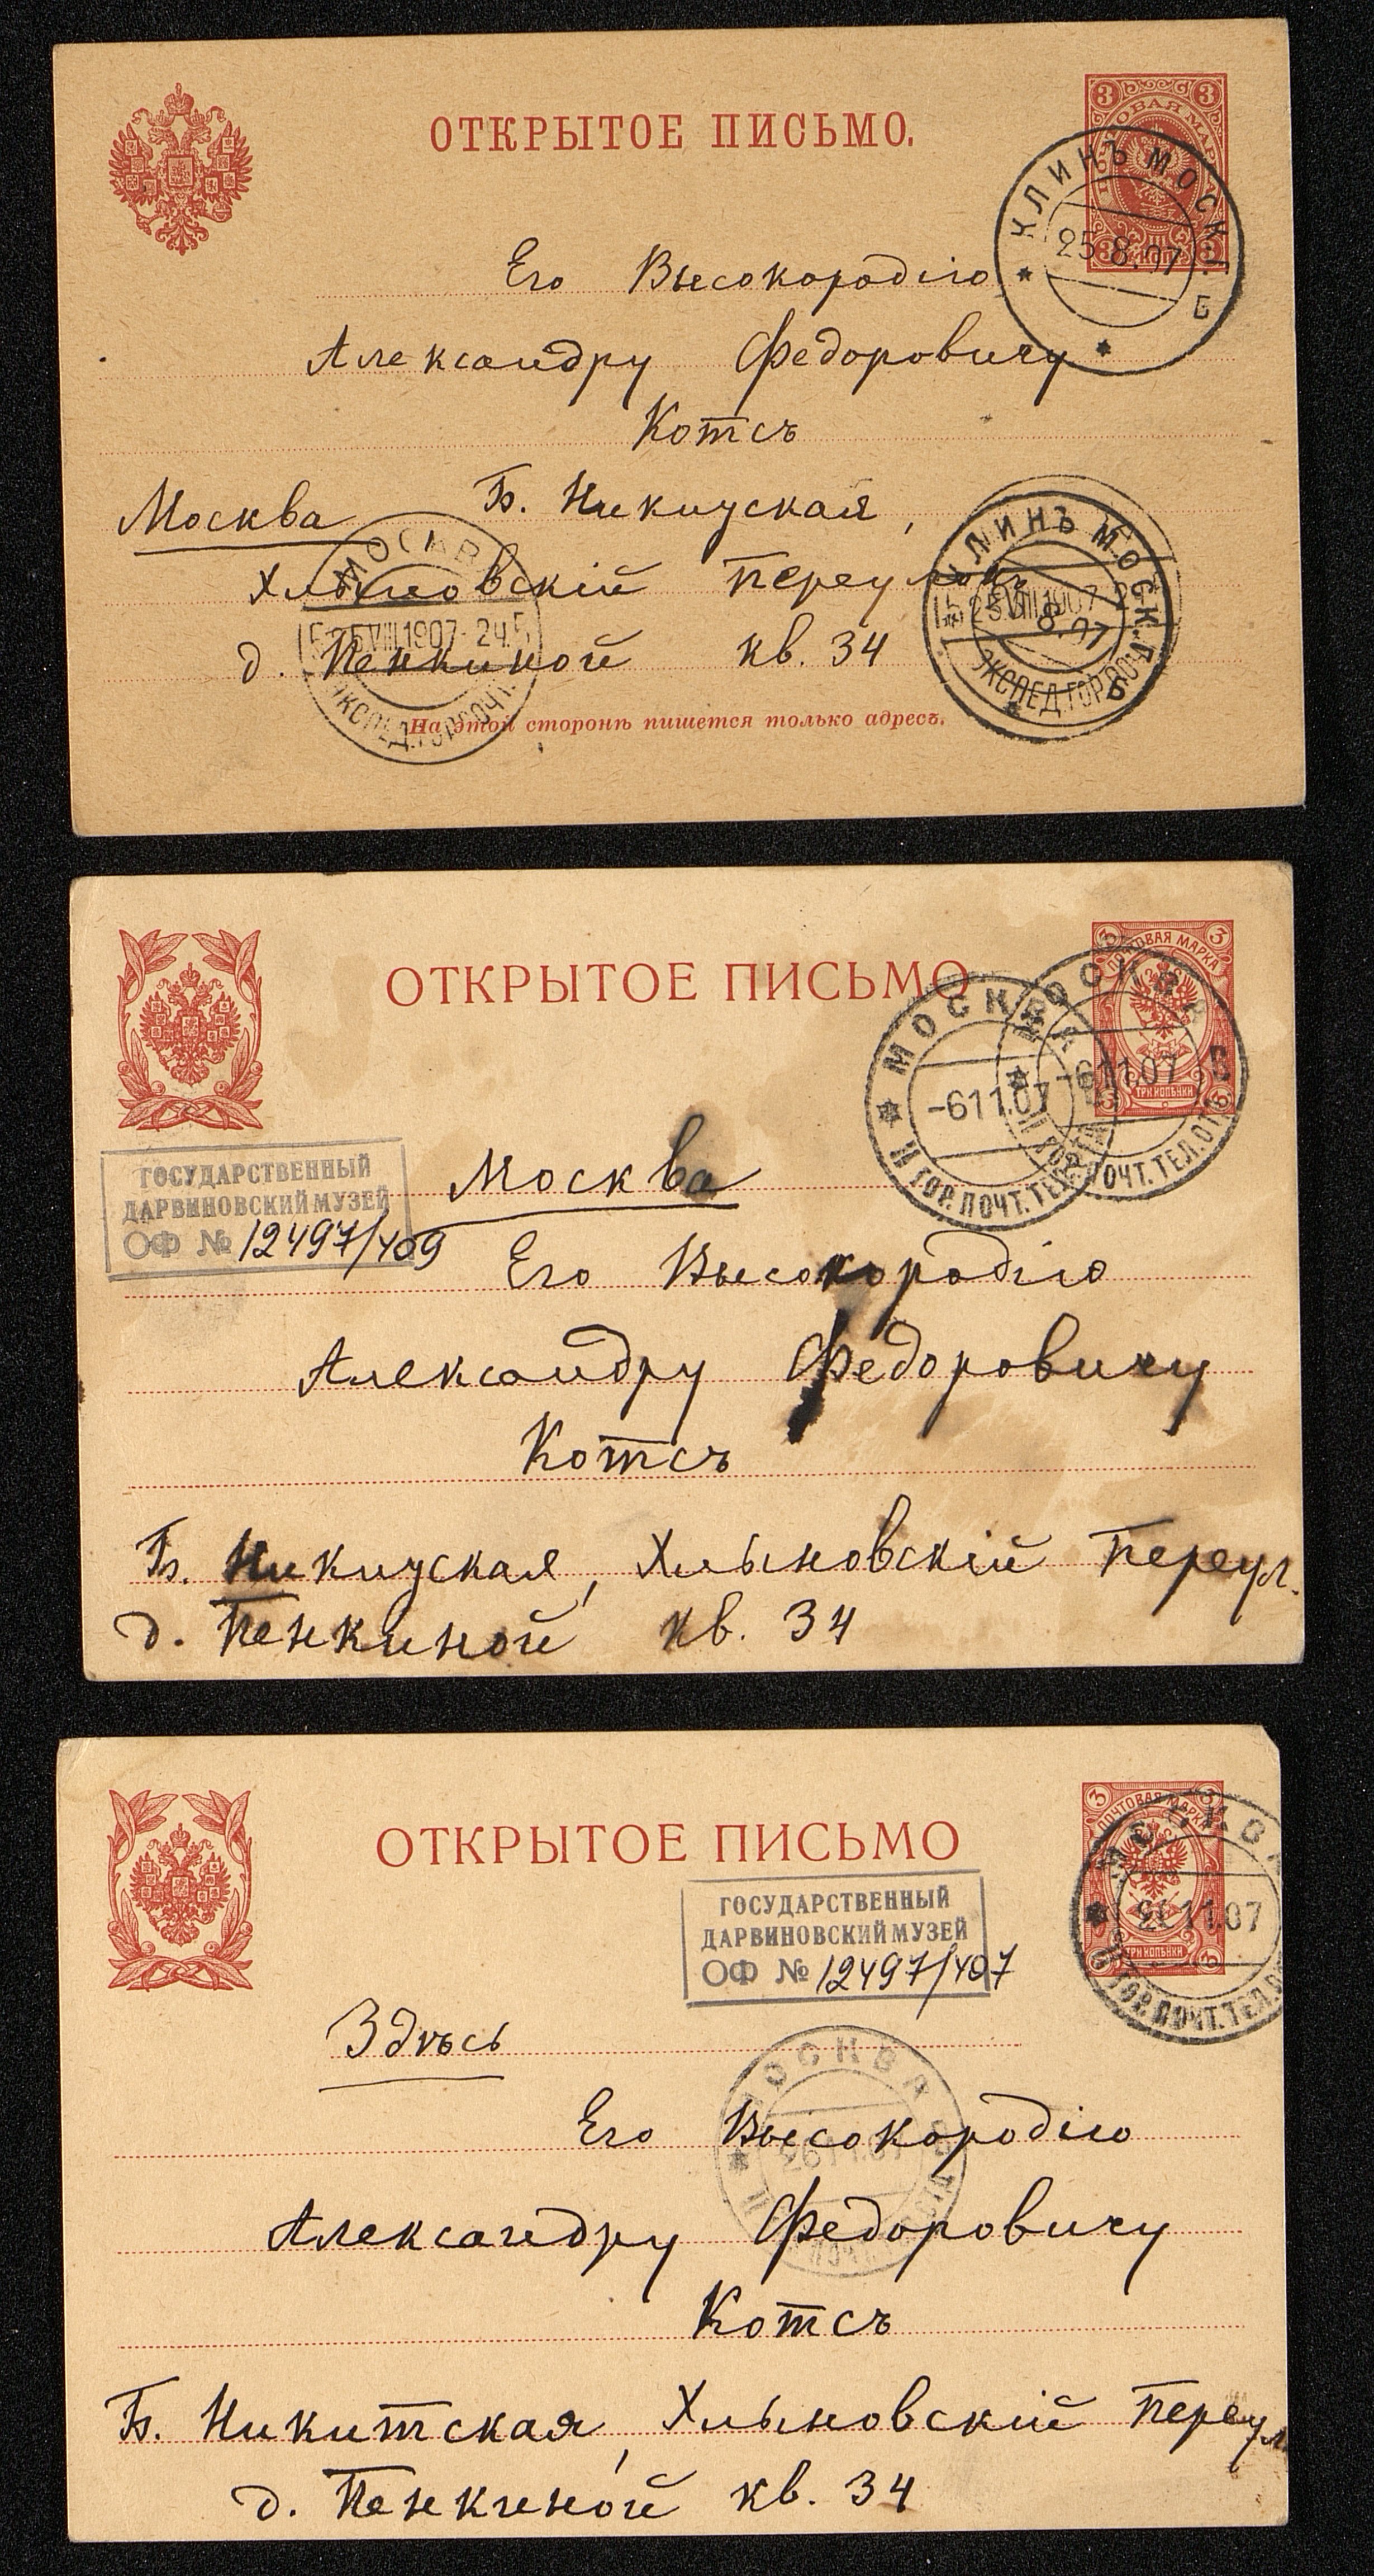 ОТКРЫТОЕ ПИСЬМО.
3 3
КЛИНЪ МОСК. Г. Б
25.8.07
Его Высокородію
Александру Федоровичу
Котсъ
Москва Б. Никицская,
Хлыновскій переулокъ
д. Пенкиной кв. 34
МОСКВА
25 VIII 1907
КЛИНЪ МОСК. Г. Б
8.07
ЭКСПЕД. ГОР. ПОЧТ.
На этой сторонѣ пишется только адресъ.
ОТКРЫТОЕ ПИСЬМО
ПОЧТОВАЯ МАРКА
ТРИ КОПѢЙКИ
МОСКВА
-6 11.07
ГОР. ПОЧТ. ТЕЛ.
МОСКВА
-6 11.07
ПОЧТ. ТЕЛ. ОТ.
ГОСУДАРСТВЕННЫЙ
ДАРВИНОВСКИЙ МУЗЕЙ
ОФ № 12497/409
Москва
Его Высокородію
Александру Федоровичу
Котсъ
Б. Никицская, Хлыновскій Переул.
д. Пенкиной кв. 34
ОТКРЫТОЕ ПИСЬМО
ПОЧТОВАЯ МАРКА
ТРИ КОПѢЙКИ
МОСКВА
11.07
ГОР. ПОЧТ. ТЕЛ.
ГОСУДАРСТВЕННЫЙ
ДАРВИНОВСКИЙ МУЗЕЙ
ОФ № 12497/407
Здѣсь
МОСКВА
Его Высокородію
Александру Федоровичу
Котсъ
Б. Никитская, Хлыновскій Переул.
д. Пенкиной кв. 34